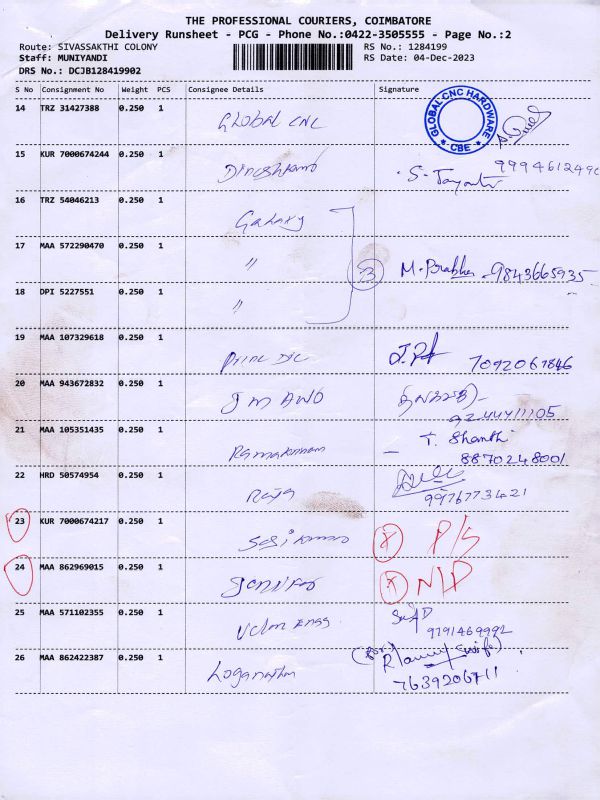 THE PROFESSIONAL COURIERS, COIMBATORE
Delivery Runsheet - PCG - Phone No.:0422-3505555 - Page No.:2
Route: SIVASSAKTHI COLONY RS No.: 1284199
Staff: MUNIYANDI RS Date: 04-Dec-2023
DRS No.: DCJB128419902
S No Consignment No Weight PCS Consignee Details Signature
14 TRZ 31427388 0.250 1 GLOBAL CNC GLOBAL CNC HARDWARE * CBE *
15 KUR 7000674244 0.250 1 S-
16 TRZ 54046213 0.250 1 Galaxy
17 MAA 572290470 0.250 1 " 3 M. Prabhu 9843665935
18 DPI 5227551 0.250 1 "
19 MAA 107329618 0.250 1 7092061846
20 MAA 943672832 0.250 1 9244411105
21 MAA 105351435 0.250 1 T. Shanthi
8870248001
22 HRD 50574954 0.250 1 Raja
9976773421
23 KUR 7000674217 0.250 1 Sasikumar X P/S
24 MAA 862969015 0.250 1 Jennifer X N/P
25 MAA 571102355 0.250 1
9191469992
26 MAA 862422387 0.250 1 Loganathan
7639206711